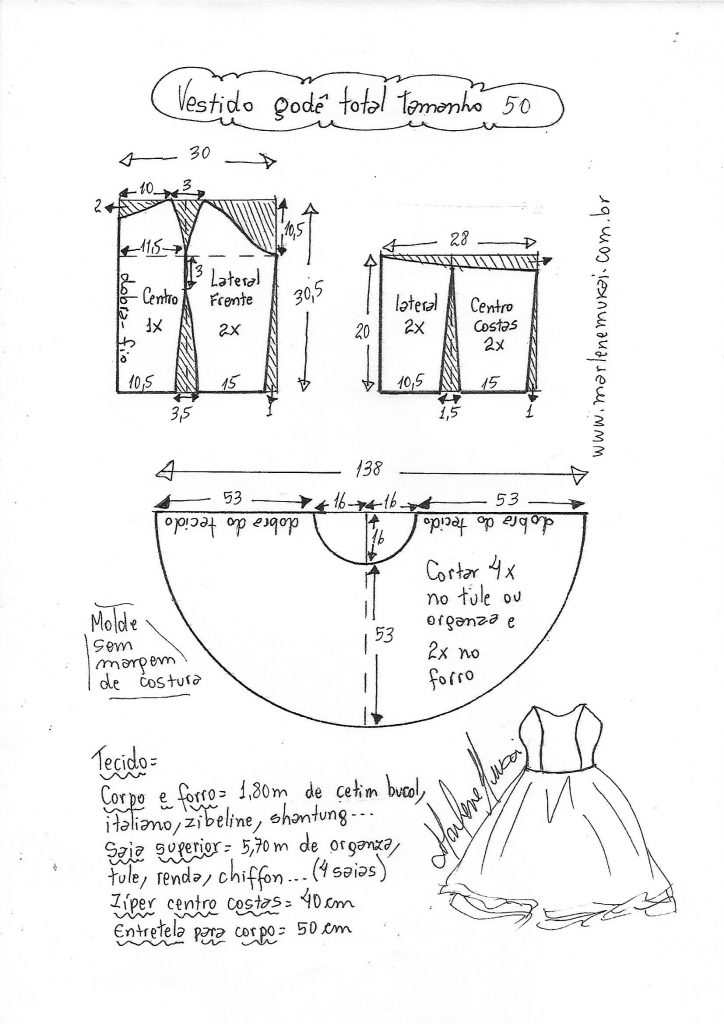 Vestido godê total tamanho 50
30
10
3
2
10,5
11,5
3
Lateral
Frente
2x
Centro
1x
dobra - fio
30,5
10,5
15
3,5
1
28
20
lateral
2x
Centro
costas
2x
10,5
15
1,5
1
www.marlenemukai.com.br
138
53
16
16
53
dobra do tecido
dobra do tecido
16
53
Cortar 4x
no tule ou
organza e
2x no
forro
Molde
sem
margem
de costura
Tecido=
Corpo e forro= 1,80m de cetim bucol,
italiano, zibeline, shantung...
Saia superior= 5,70m de organza,
tule, renda, chiffon... (4 saias)
Zíper centro costas= 40 cm
Entretela para corpo= 50 cm
Marlene Mukai